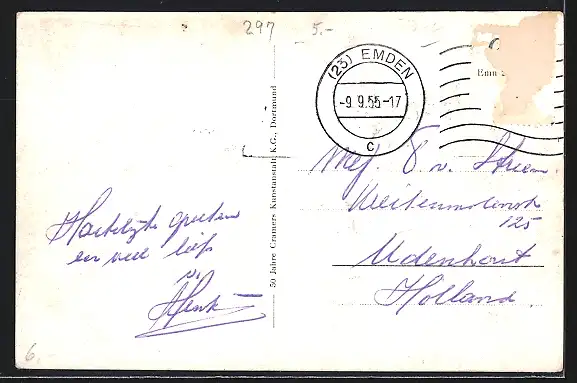 297
5.-
(23) EMDEN
-9.9.55-17
c
Emm
50 Jahre Cramers Kunstanstalt, K.G., Dortmund
Mej. v.
125
Udenhout
Holland.
Hartelijke groeten
en veel liefs
Henk
6.